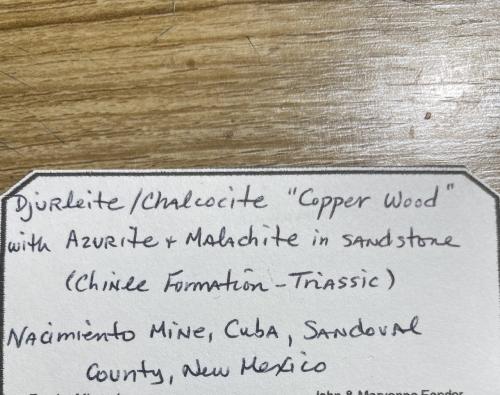 Djurleite/Chalcocite "Copper Wood"
with Azurite + Malachite in sandstone
(Chinle Formation - Triassic)
Nacimiento Mine, Cuba, Sandoval
County, New Mexico